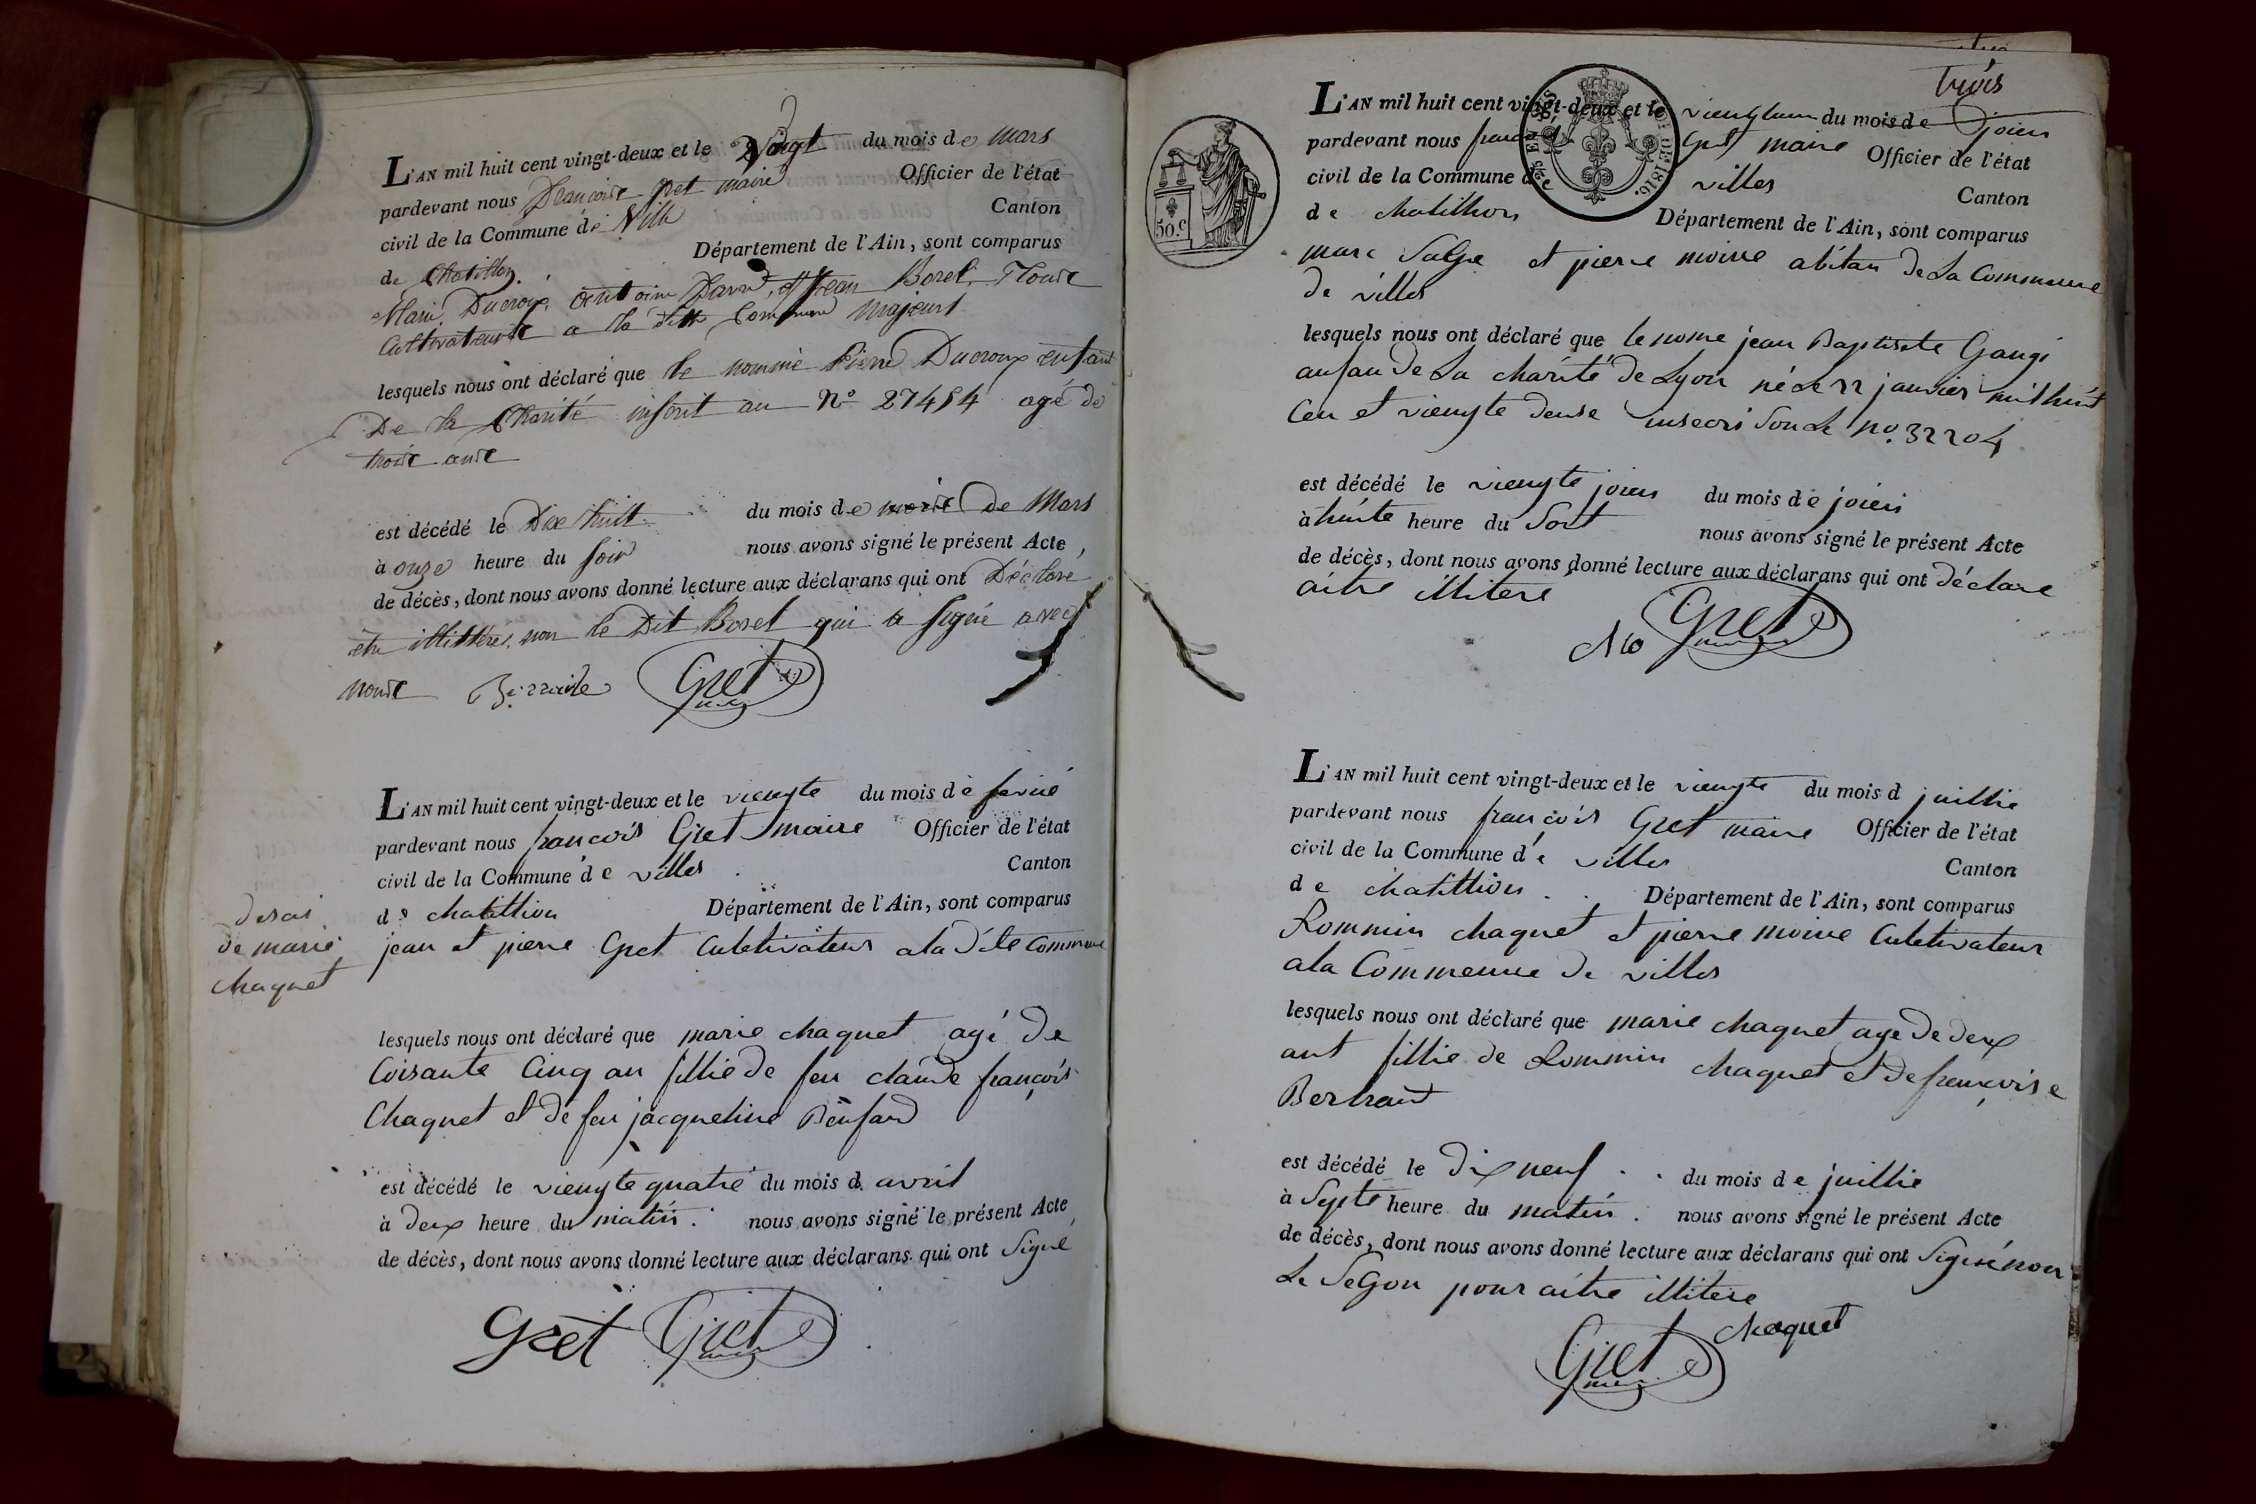 L'AN mil huit cent vingt-deux et le Vingt du mois de Mars
pardevant nous francois Gret maire Officier de l'état
civil de la Commune de Ville Canton
de Chatillon Département de l'Ain, sont comparus
Ducroux, antoine et jean Borel, Tous
Cultivateurs a la ditte Commune Majeurs
lesquels nous ont déclaré que le nommé Pierre Ducroux enfant
De la Charité inscrit au N° 27454 agé de
trois ans
est décédé le Dix huit du mois de mois de Mars
à onze heure du soir nous avons signé le présent Acte
de décès, dont nous avons donné lecture aux déclarans qui ont Déclaré
être illittéré, non le Dit Borel qui a signé avec
nous Gret
L'AN mil huit cent vingt-deux et le viengte du mois de
pardevant nous francois Gret maire Officier de l'état
civil de la Commune de villes Canton
de chatillion Département de l'Ain, sont comparus
jean et pierre Gret Cultivateur a la dite Commune
desai
de marie
chaquet
lesquels nous ont déclaré que marie chaquet agé de
Coisante Cinq an fillie de feu claude françois
Chaquet et de feu jacqueline
est décédé le viengte quatre du mois d avril
à deux heure du matin. nous avons signé le présent Acte
de décès, dont nous avons donné lecture aux déclarans qui ont Signé
Gret Gret
trois
L'AN mil huit cent vingt-deux et le du mois de joien
pardevant nous Gret maire Officier de l'état
civil de la Commune villes Canton
de chatillion Département de l'Ain, sont comparus
DE 1816.
50.c
marc et pierre moine abitan de La Commeune
de villes
lesquels nous ont déclaré que le nome jean Baptiste Gangi
anfan de La charité de Lyon né le 22 janvier mil huit
Cen et viengte deuse inscri Sou Le no. 32204
est décédé le viengte joien du mois de joien
à huite heure du Soit nous avons signé le présent Acte
de décès, dont nous avons donné lecture aux déclarans qui ont déclare
aitre illitere
Gret
L'AN mil huit cent vingt-deux et le viengte du mois d juillie
pardevant nous françois Gret maire Officier de l'état
civil de la Commune de villes Canton
de chatillion Département de l'Ain, sont comparus
Rommin chaquet et pierre moine Cultivateur
a la Commeune de villes
lesquels nous ont déclaré que marie chaquet age de deux
ant fillie de Rommin chaquet et de françoise
Bertrand
est décédé le dix neuf du mois de juillie
à Septe heure du matin. nous avons signé le présent Acte
de décès, dont nous avons donné lecture aux déclarans qui ont Signé non
Le Segon pour aitre illitere
chaquet
Gret